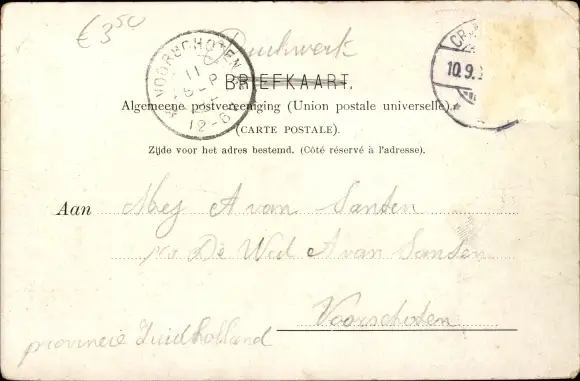 € 3,50
Drukwerk
VOORSCHOTEN
11
12-6
10.9.
BRIEFKAART.
Algemeene postvereeniging (Union postale universelle).
(CARTE POSTALE).
Zijde voor het adres bestemd. (Côté réservé à l'adresse).
Aan Mej A van Santen
De Wed A van Santen
Voorschoten
provincie Zuidholland